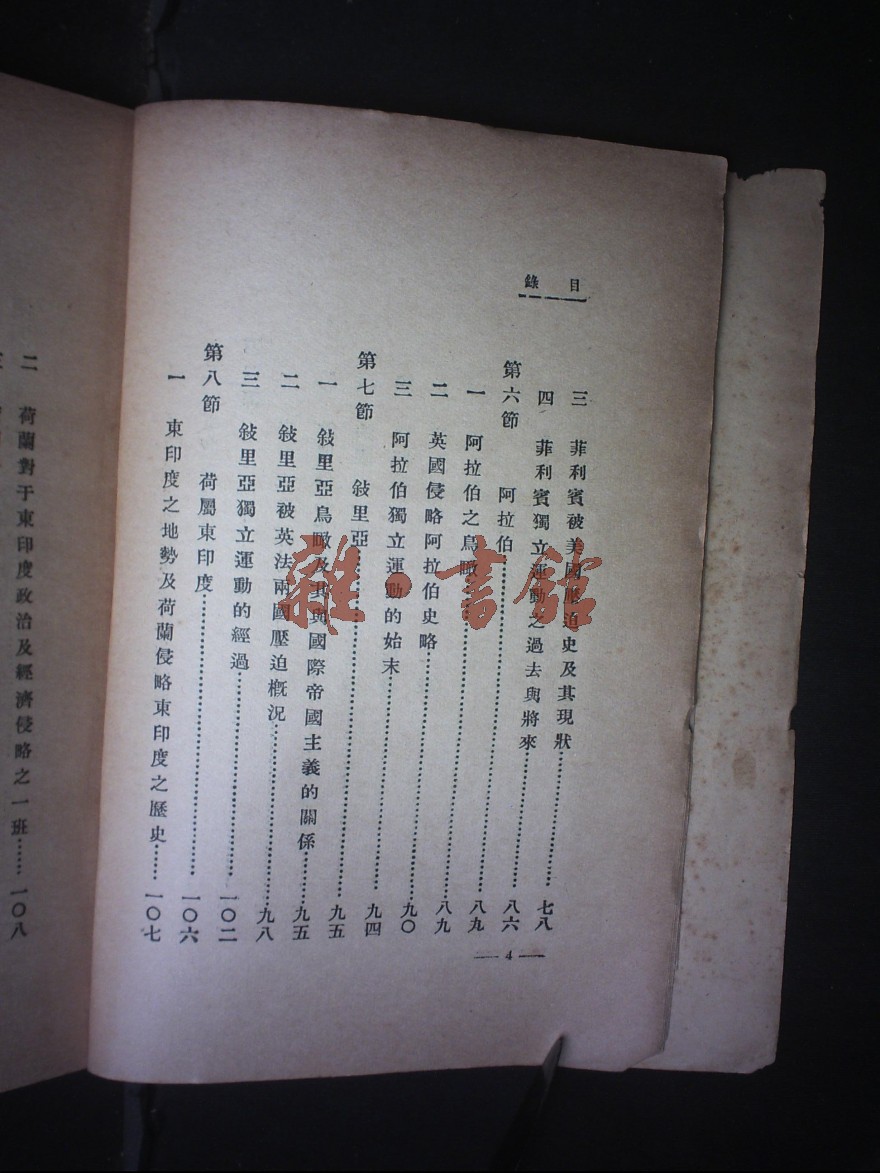 目錄
三 菲利賓被美國壓迫史及其現狀……七八
四 菲利賓獨立運動之過去與將來……八六
第六節 阿拉伯……八九
一 阿拉伯之鳥瞰……八九
二 英國侵略阿拉伯史略……九〇
三 阿拉伯獨立運動的始末……九四
第七節 敍里亞……九五
一 敍里亞鳥瞰及其與國際帝國主義的關係……九五
二 敍里亞被英法兩國壓迫槪況……九八
三 敍里亞獨立運動的經過……一〇二
第八節 荷屬東印度……一〇六
一 東印度之地勢及荷蘭侵略東印度之歷史……一〇七
— 4 —
二 荷蘭對于東印度政治及經濟侵略之一班……一〇八
雜·書館